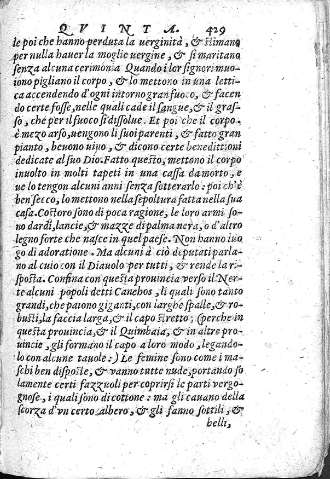 QVINTA. 429
le poi che hanno perduta la uerginità, & stimano
per nulla hauer la moglie uergine, & si maritano
senza alcuna cerimonia Quando i lor signori muo
iono pigliano il corpo, & lo mettono in una letti-
ca accendendo d'ogni intorno gran fuoco, & facen
do certe fosse, nelle quali cade il sangue, & il gras-
so, che per il fuoco si dissolue. Et poi che il corpo
è mezo arso, uengono li suoi parenti, & fatto gran
pianto, beuono uino, & dicono certe benedittioni
dedicate al suo Dio. Fatto questo, mettono il corpo
inuolto in molti tapeti in una cassa da morto, e
ue lo tengon alcuni anni senza sotterarlo: poi ch'è
ben secco, lo mettono nella sepoltura fatta nella sua
casa. Costoro sono di poca ragione, le loro armi so-
no dardi, lancie, & mazze di palma nera, o d'altro
legno forte che nasce in quel paese. Non hanno luo
go di adoratione. Ma alcuni à ciò deputati parla-
no al cuio con il Diauolo per tutti, & rende la ri-
sposta. Confina con questa prouincia verso il Ner-
te alcuni popoli detti Canchos, li quali sono tanto
grandi, che paiono giganti, con larghe spalle, & ro-
busti, la faccia larga, & il capo stretto; (perche in
questa prouincia, & il Quimbaia, & in altre pro-
uincie, gli formano il capo a loro modo, legando-
lo con alcune tauole:) Le femine sono come i ma-
schi ben disposte, & vanno tutte nude, portando so
lamente certi fazzuoli per coprirsi le parti vergo-
gnose, i quali sono di cottone: ma gli cauano della
scorza d'vn certo albero, & gli fanno sottili, &
belli,